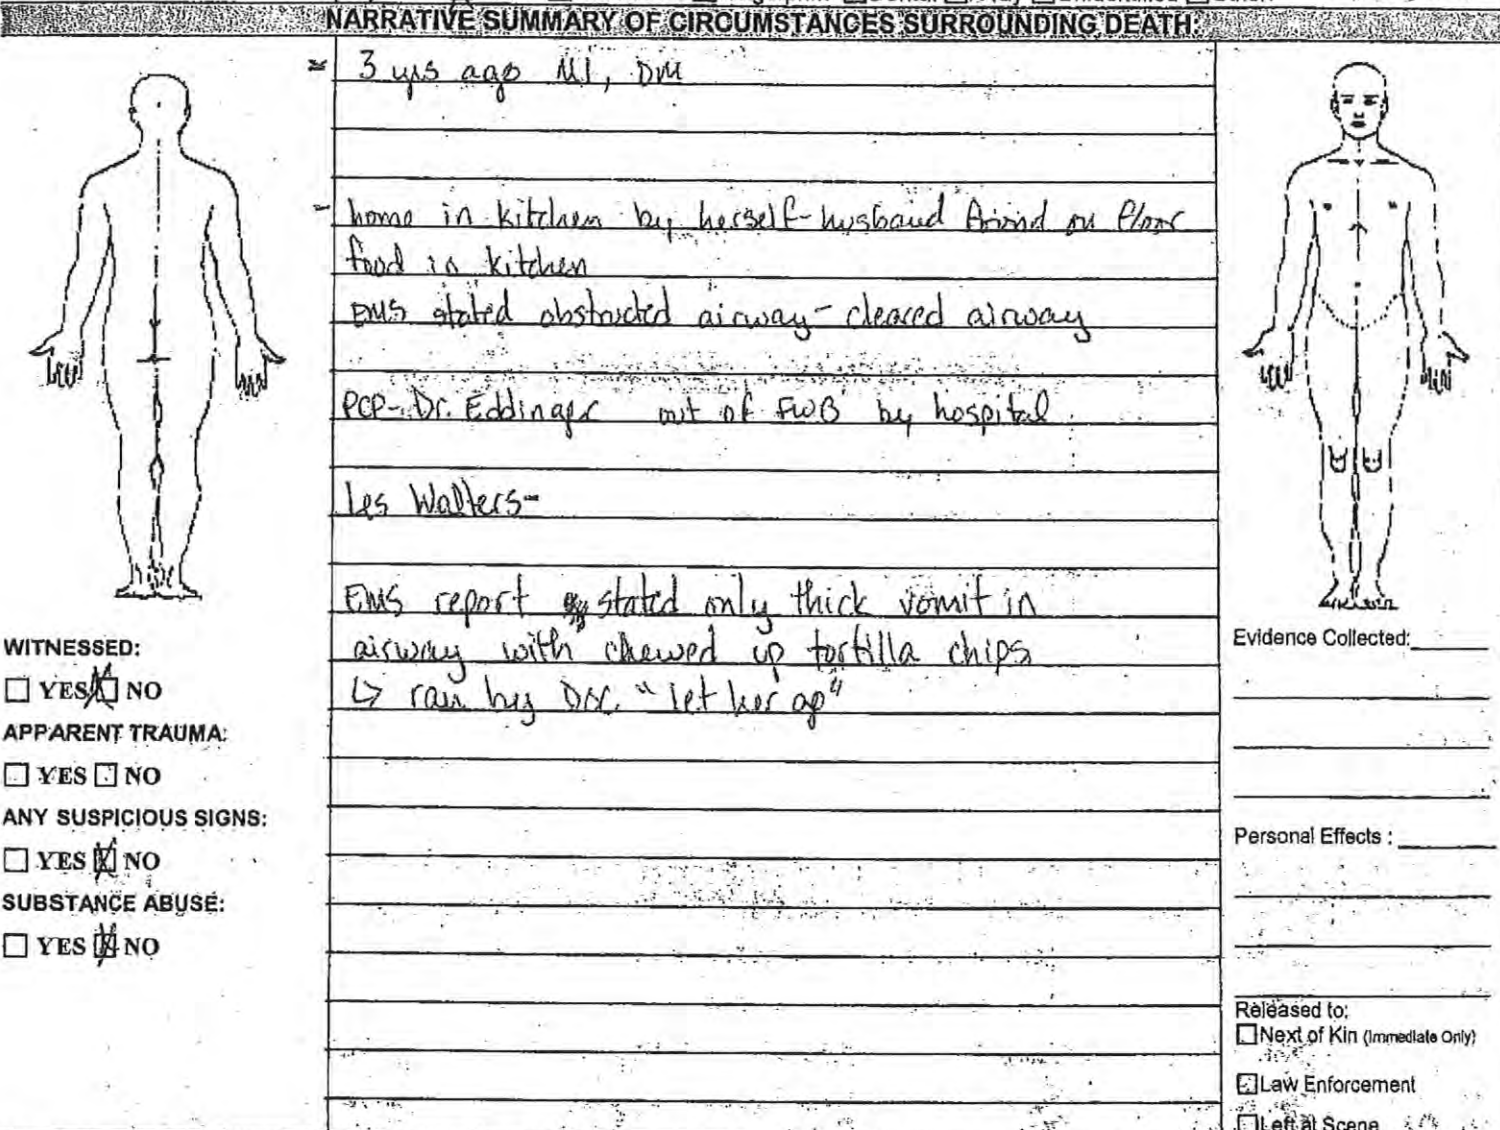 NARRATIVE SUMMARY OF CIRCUMSTANCES SURROUNDING DEATH:
3 yrs ago MI, DM
home in kitchen by herself - husband found on floor
food in kitchen
EMS stated obstructed airway - cleared airway
PCP - Dr. Eddinger out of FWB by hospital
Les Walters -
EMS report stated only thick vomit in
airway with chewed up tortilla chips
↳ ran by Doc. "let her go"
WITNESSED:
YES NO
APPARENT TRAUMA:
YES NO
ANY SUSPICIOUS SIGNS:
YES NO
SUBSTANCE ABUSE:
YES NO
Evidence Collected:
Personal Effects :
Released to:
Next of Kin (Immediate Only)
Law Enforcement
Left at Scene